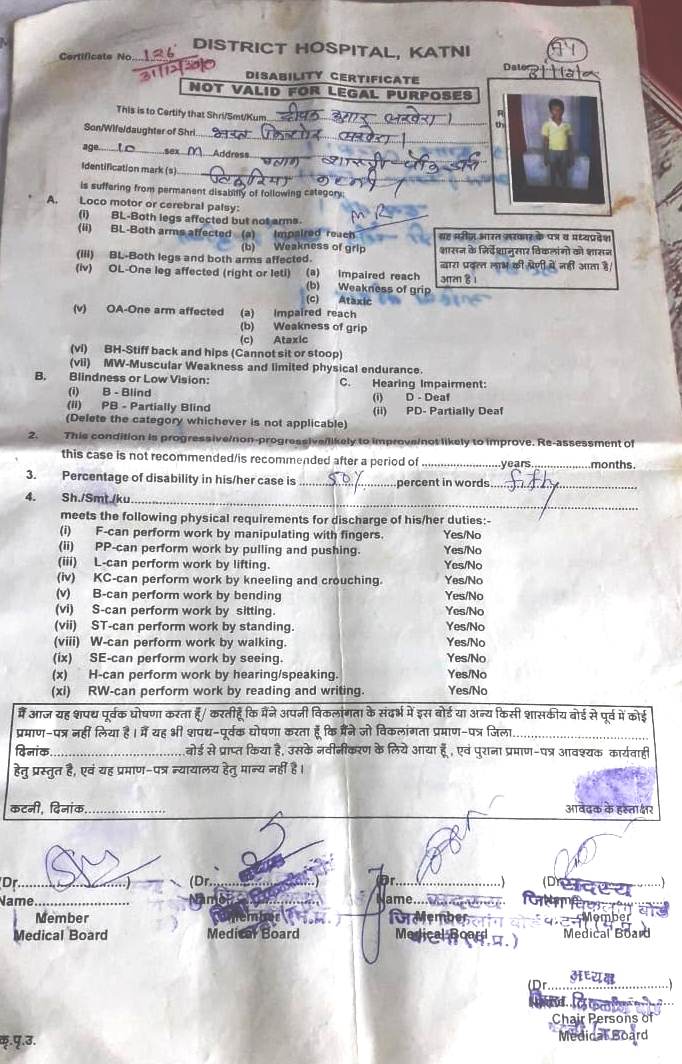 Certificate No. 126
DISTRICT HOSPITAL, KATNI
31/12/2010
Date 31/12/10
DISABILITY CERTIFICATE
NOT VALID FOR LEGAL PURPOSES
This is to Certify that Shri/Smt/Kum. दीपक कुमार
Son/Wife/daughter of Shri. किशोर
age 10 sex M Address
Identification mark (s)
is suffering from permanent disability of following category:
A. Loco motor or cerebral palsy: MR
(i) BL-Both legs affected but not arms.
(ii) BL-Both arms affected (a) Impaired reach
(b) Weakness of grip
(iii) BL-Both legs and both arms affected.
(iv) OL-One leg affected (right or leti) (a) Impaired reach
(b) Weakness of grip
(c) Ataxic
यह मरीज भारत सरकार के पत्र व मध्यप्रदेश
शासन के निर्देशानुसार विकलांगो को शासन
द्वारा प्रदत्त लाभ की श्रेणी में नहीं आता है/
आता है।
(v) OA-One arm affected (a) Impaired reach
(b) Weakness of grip
(c) Ataxic
(vi) BH-Stiff back and hips (Cannot sit or stoop)
(vii) MW-Muscular Weakness and limited physical endurance.
B. Blindness or Low Vision: C. Hearing Impairment:
(i) B - Blind (i) D - Deaf
(ii) PB - Partially Blind (ii) PD- Partially Deaf
(Delete the category whichever is not applicable)
2. This condition is progressive/non-progressive/likely to improve/not likely to improve. Re-assessment of
this case is not recommended/is recommended after a period of years months.
3. Percentage of disability in his/her case is 50% percent in words fifty
4. Sh./Smt./ku
meets the following physical requirements for discharge of his/her duties:-
(i) F-can perform work by manipulating with fingers. Yes/No
(ii) PP-can perform work by pulling and pushing. Yes/No
(iii) L-can perform work by lifting. Yes/No
(iv) KC-can perform work by kneeling and crouching. Yes/No
(v) B-can perform work by bending Yes/No
(vi) S-can perform work by sitting. Yes/No
(vii) ST-can perform work by standing. Yes/No
(viii) W-can perform work by walking. Yes/No
(ix) SE-can perform work by seeing. Yes/No
(x) H-can perform work by hearing/speaking. Yes/No
(xi) RW-can perform work by reading and writing. Yes/No
मैं आज यह शपथ पूर्वक घोषणा करता हूँ/ करती हूँ कि मैंने अपनी विकलांगता के संदर्भ में इस बोर्ड या अन्य किसी शासकीय बोर्ड से पूर्व में कोई
प्रमाण-पत्र नहीं लिया है। मैं यह भी शपथ-पूर्वक घोषणा करता हूँ कि मैंने जो विकलांगता प्रमाण-पत्र जिला
दिनांक बोर्ड से प्राप्त किया है, उसके नवीनीकरण के लिये आया हूँ, एवं पुराना प्रमाण-पत्र आवश्यक कार्यवाही
हेतु प्रस्तुत है, एवं यह प्रमाण-पत्र न्यायालय हेतु मान्य नहीं है।
कटनी, दिनांक आवेदक के हस्ताक्षर
(Dr. ) (Dr. ) (Dr. ) (Dr. सदस्य )
Name Name Name
Member Member Member Member
Medical Board Medical Board Medical Board Medical Board
(Dr. अध्यक्ष )
Chair Persons of
Medical Board